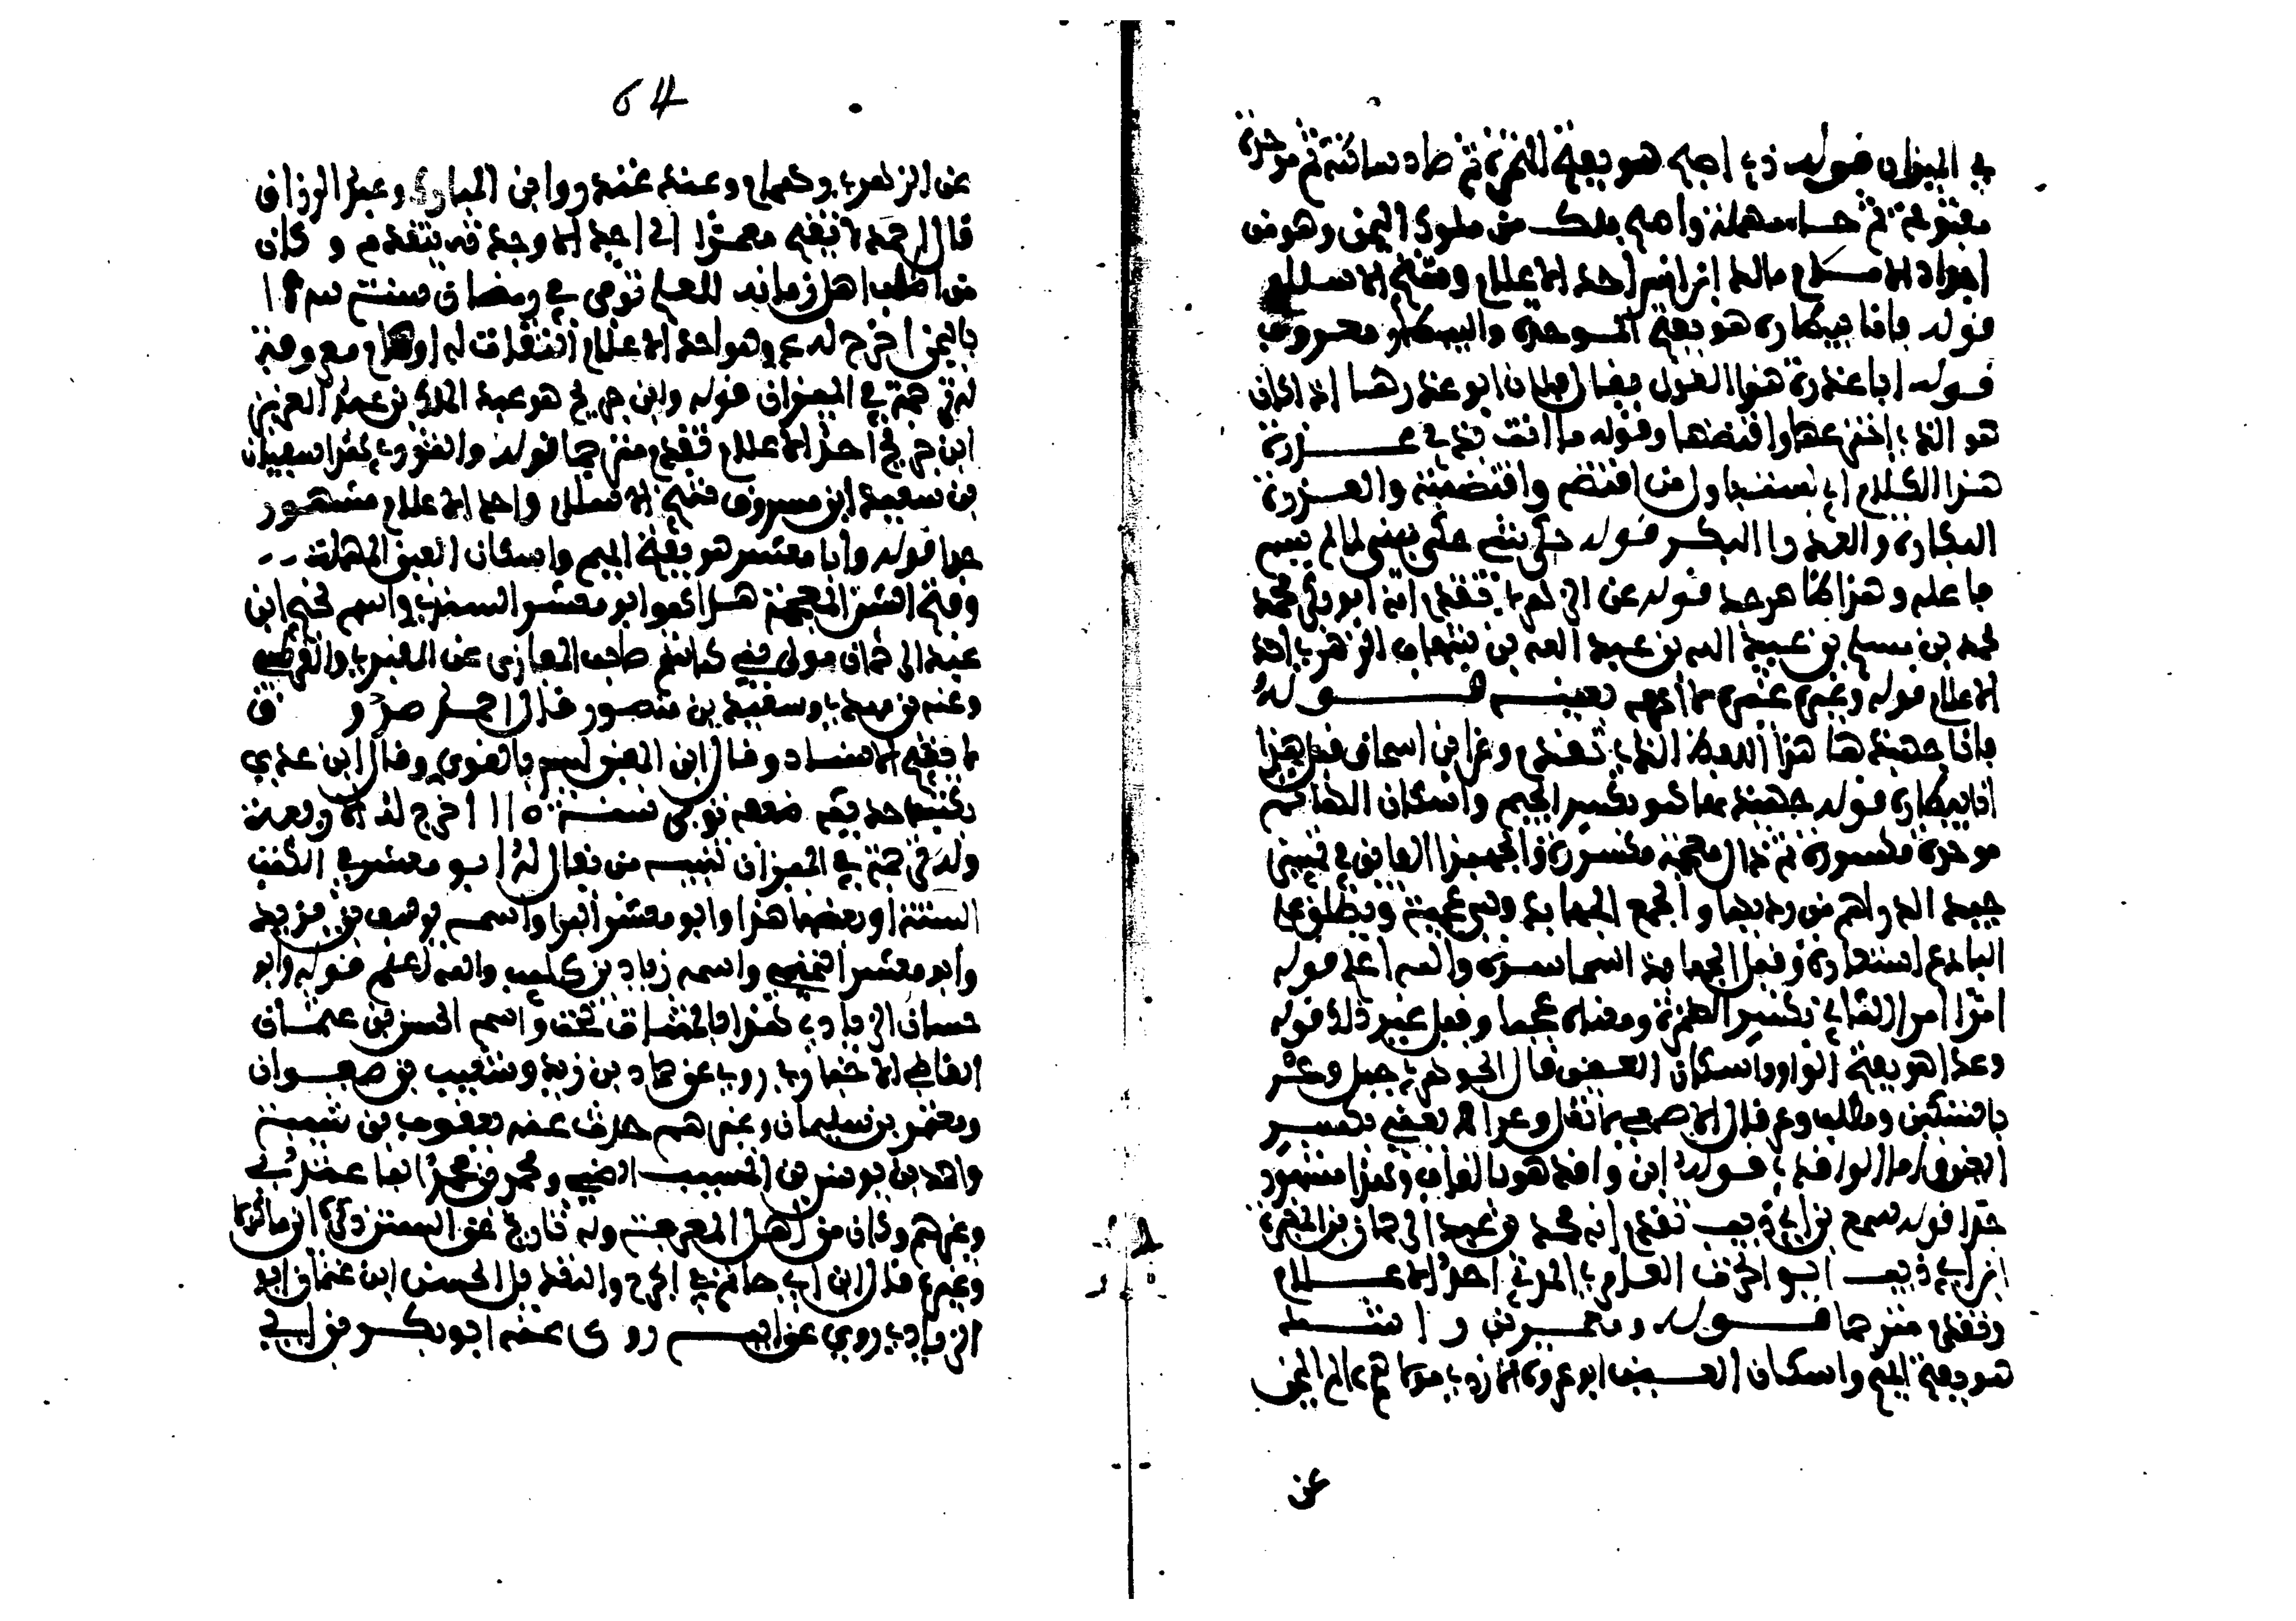 في الميزان قوله ذي اصبح هو بفتح الهمزة ثم صاد ساكنة ثم موحدة
مفتوحة ثم حاء مهملة واصبح ملك من ملوك اليمن وهو من
اجداد الامام مالك ابن انس احد الاعلام وشيخ الاسلام
قوله باقا بيطاره هو بفتح الموحدة والبيطار معروف
قوله ابا عذرة هذا القول يقال فلان ابو عذرها اذا كان
هو الذي اخترعها وافتضها وقوله ما انت بذي عذرة
هذا الكلام اي لست باول من افتضه واقتضبه والعذرة
البكارة والعذرا البكر قوله حتى يثني حتى ينتهي لما لم يسم
فاعله وهذا ظاهر جدا قوله عن الزهري تقدم انه ابو بكر محمد
محمد بن مسلم بن عبيد الله بن عبد الله بن شهاب الزهري احد
الاعلام قوله وغيره غيره لا اعرفه بعينه قوله
فانا جهبذها هذا اللفظ الذي تقدم وعن ابن اسحاق قبل هذا
انا بيطاره قوله جهبذها هو بكسر الجيم واسكان الها ثم
موحدة مكسورة ثم ذال معجمة مكسورة والجهبذ الفائق في تمييز
جيد الدراهم من رديها والجمع الجهابذة وهي عجمية ويطلق على
البارع استعارة وقيل الجهابذة السماسرة والله اعلم قوله
امرا امر القاي بكسر الهمزة ومعناه عجبا وقيل غير ذلك قوله
وعدا هو بفتح الواو واسكان العين قال الجوهري جبل وعر
بالتسكين ومطلب وعر قال الاصمعي لا تقل وعر اهـ يعني بكسر
العين اما الواقدي قوله ابن واقد هو بالقاف وهذا مشهور
جدا قوله سمع بن ابي ذيب تقدم انه محمد بن عبد الرحمان بن المغيرة
ابن ابي ذيب ابو الحرث العامري المدني احد الاعلام
وتقدم مترجما قوله ومعمر بن راشد
هو بفتح الميم واسكان العين ابو عروة الازدي مولاهم عالم اليمن
عن
64
عن الزهري وهمام وعنه غندر وابن المبارك وعبد الرزاق
قال احمد لا تضم معمرا الى احد الا وجدته يتقدم وكان
من اطلب اهل زمانه للعلم توفي في رمضان سنة
باليمن اخرج له ع وهو احد الاعلام الثقات له اوهام معروفة
له ترجمة في الميزان قوله وابن جريج هو عبد الملك بن عبد العزيز
ابن جريج احد الاعلام تقدم مترجما قوله والثوري هذا سفيان
بن سعيد ابن مسروق شيخ الاسلام واحد الاعلام مشهور
جدا قوله وابا معشر هو بفتح الميم واسكان العين المهملة
وفتح الشين المعجمة هذا هو ابو معشر السندي واسمه نجيح ابن
عبد الرحمان مولى بني هاشم صاحب المغازي عن المقبري والقرظي
وعنه بن مهدي وسعيد بن منصور قال احمد صدوق
لا يقيم الاسناد وقال ابن معين ليس بالقوي وقال ابن عدي
يكتب حديثه مع ضعفه توفي سنة 115 اخرج له الاربعة
وله ترجمة في الميزان تنبيه من يقال له ابو معشر في الكتب
الستة او بعضها هذا وابو معشر البرا واسمه يوسف بن يزيد
وابو معشر التميمي واسمه زياد بن كليب والله اعلم قوله وابو
حسان الزيادي هذا بالمثناة تحت واسمه الحسن بن عثمان
القاضي الاخباري روى عن حماد بن زيد وشعيب بن صفوان
ومعتمر بن سليمان وغيرهم حدث عنه يعقوب بن شيبة
واحمد بن يونس بن المسيب الضبي ومحمد بن محمد الباغندي
وغيرهم وكان من اهل المعرفة وله تاريخ على السنين ذكره ابن ماكولا
وغيره قال ابن ابي حاتم في الجرح والتعديل الحسن ابن عثمان ابو
الزيادي روي عن ابيه روى عنه ابو بكر بن ابي